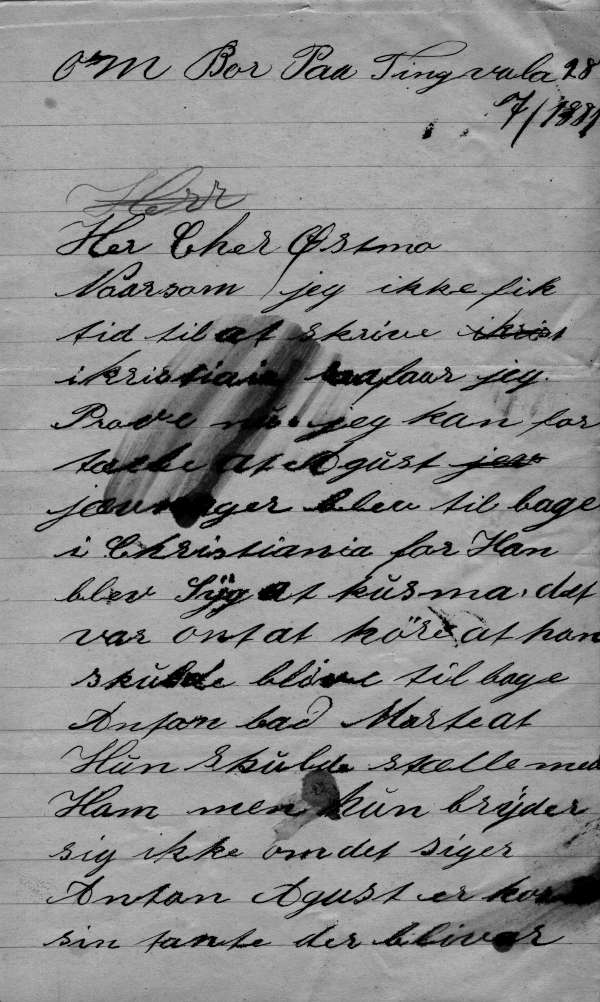 OmM Bor Paa Tingvala 28
7/1881
Herr
Her Cher Østmo
Naarsom jeg ikke fik
tid til at skrive
ikristiania saa faar jeg
Prove nu. jeg kan for
tælle at Agust jev
jævninger blev til bage
i Christiania for Han
blev Syg at kusma, det
var ont at høre at han
skulde blive til bage
Anton bad Marte at
Hun skulde stelle med
Ham men hun bryder
sig ikke om det siger
Anton Agust er hos
sin tante der bliver